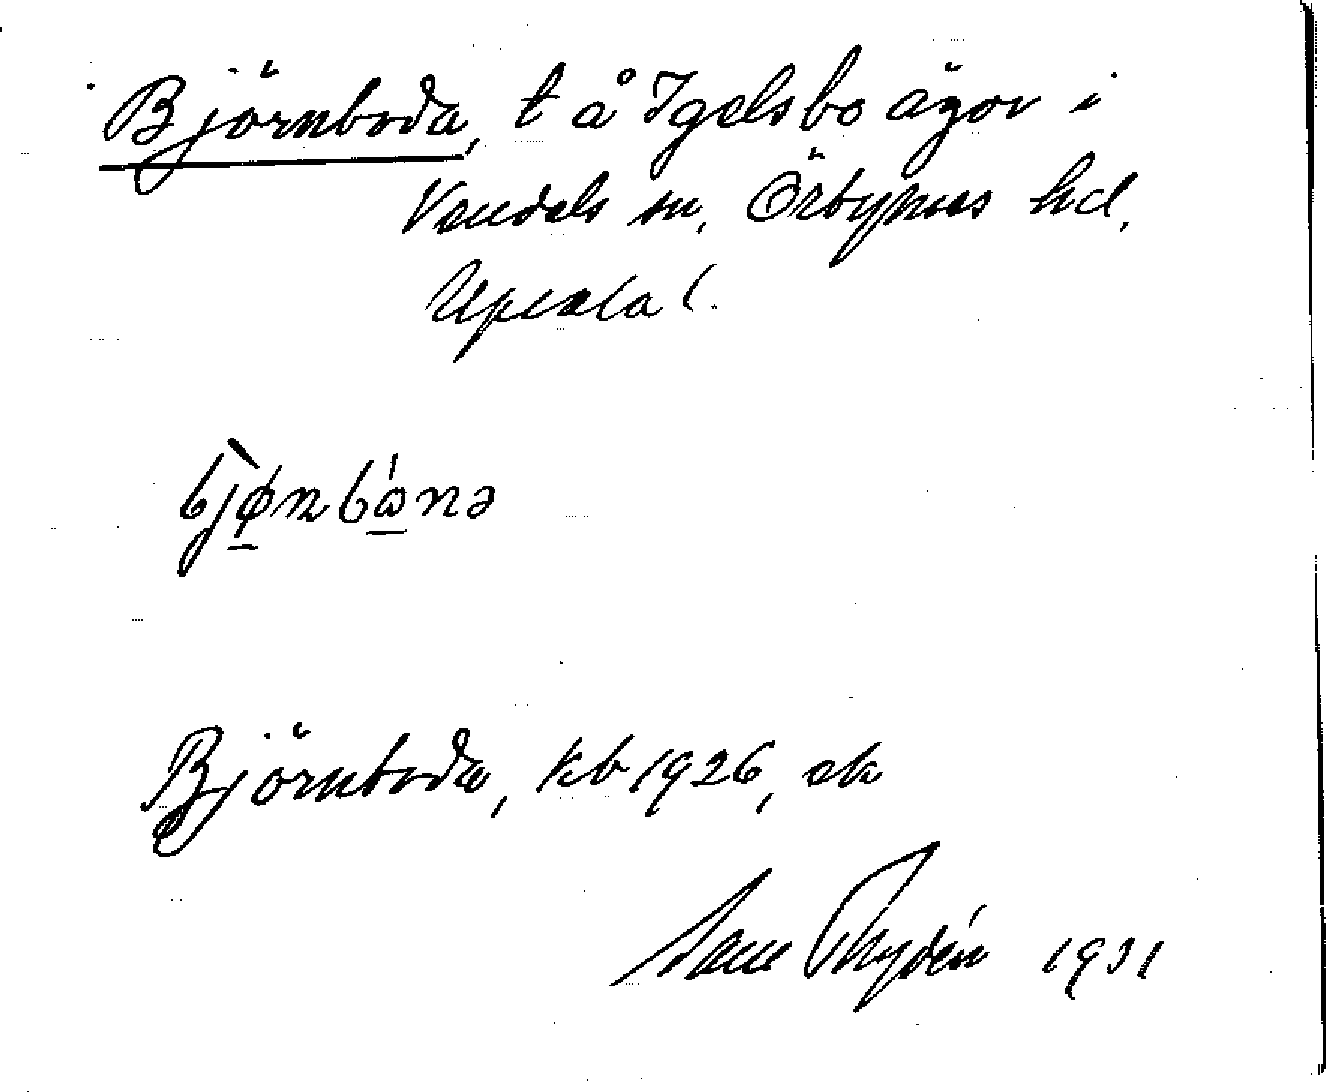 Björnboda, t å Igelsbo ägor i
Vendels sn, Örbyhus hd,
Upsala l.
Björnboda, kb 1926, ek
Rydén 1931